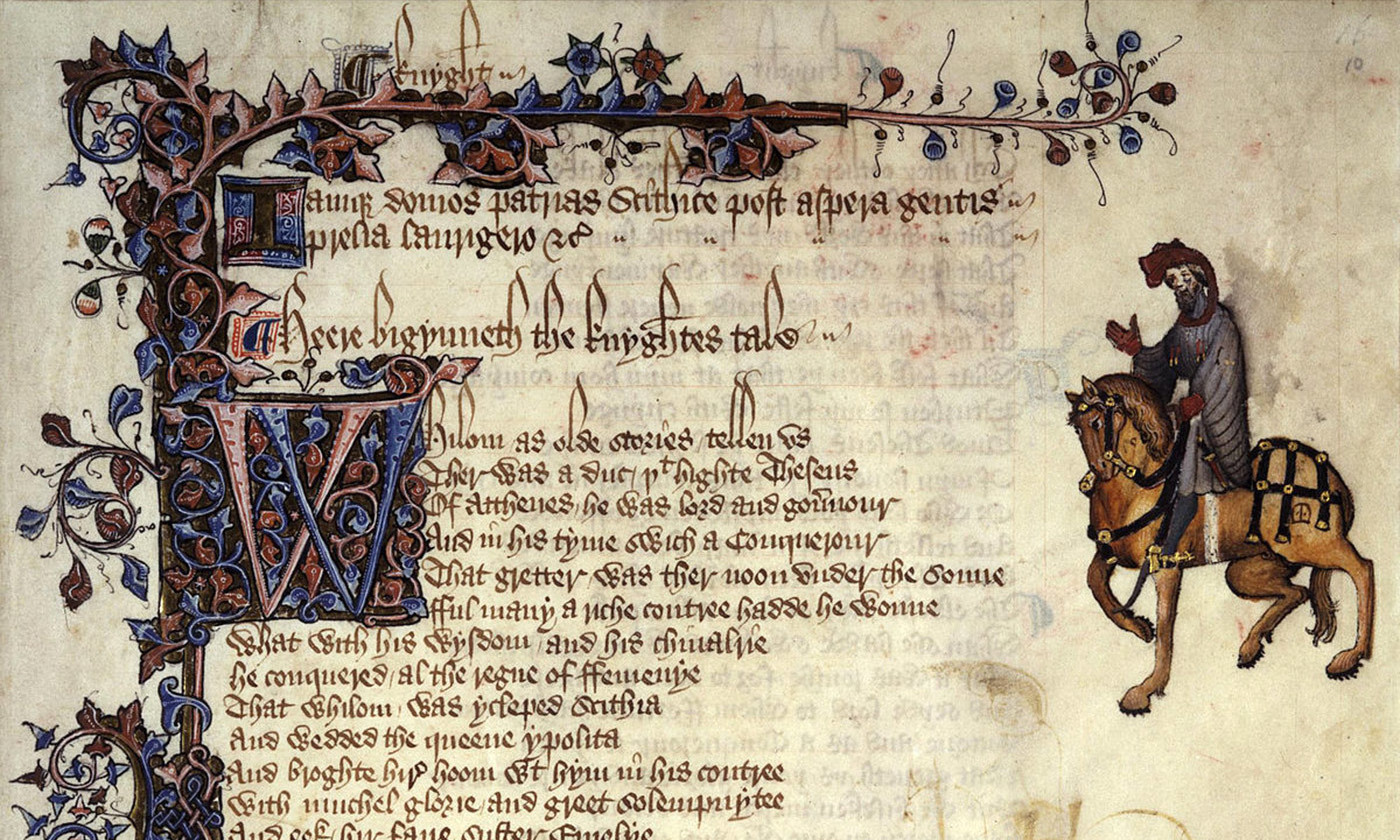 ¶ knyght
10
Iamq; domos patrias Scithice post aspera gentis
prelia laurigero &c
¶ Heere bigynneth the knyghtes tale
Whilom as olde stories / tellen vs
Ther was a duc / þᵗ highte Theseus
Of Atthenes / he was lord and gou̅nour
And in his tyme swich a Conquerour
That gretter was ther noon vnder the sonne
fful many a riche contree hadde he wonne
What with his wysdom and his chiualrie
he conquered / al the regne of ffemenye
That whilom was ycleped Scithia
And wedded the queene ypolita
And broghte hir hoom wᵗ hym in his contree
With muchel glorie and greet solempnytee
And eek hir faire Suster Emelye